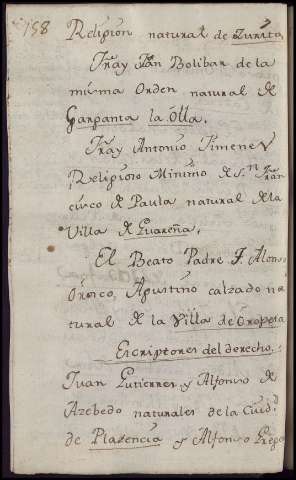 158
Religion natural de Zurita
Fray Jũan Bolibar de la
misma Orden natural de
Garganta la Olla.
Fray Antonio Ximenez
Religioso Minimo de Sn. Fran
cisco de Paula natural de la
Villa de Guareña.
El Beato Padre F. Alonso
Orosco, Agustino calzado na
tural de la Villa de Oropesa
Escriptores del derecho.
Juan Gutierres y Alfonso de
Azebedo naturales de la Ciud.d
de Plasencia y Alfonso